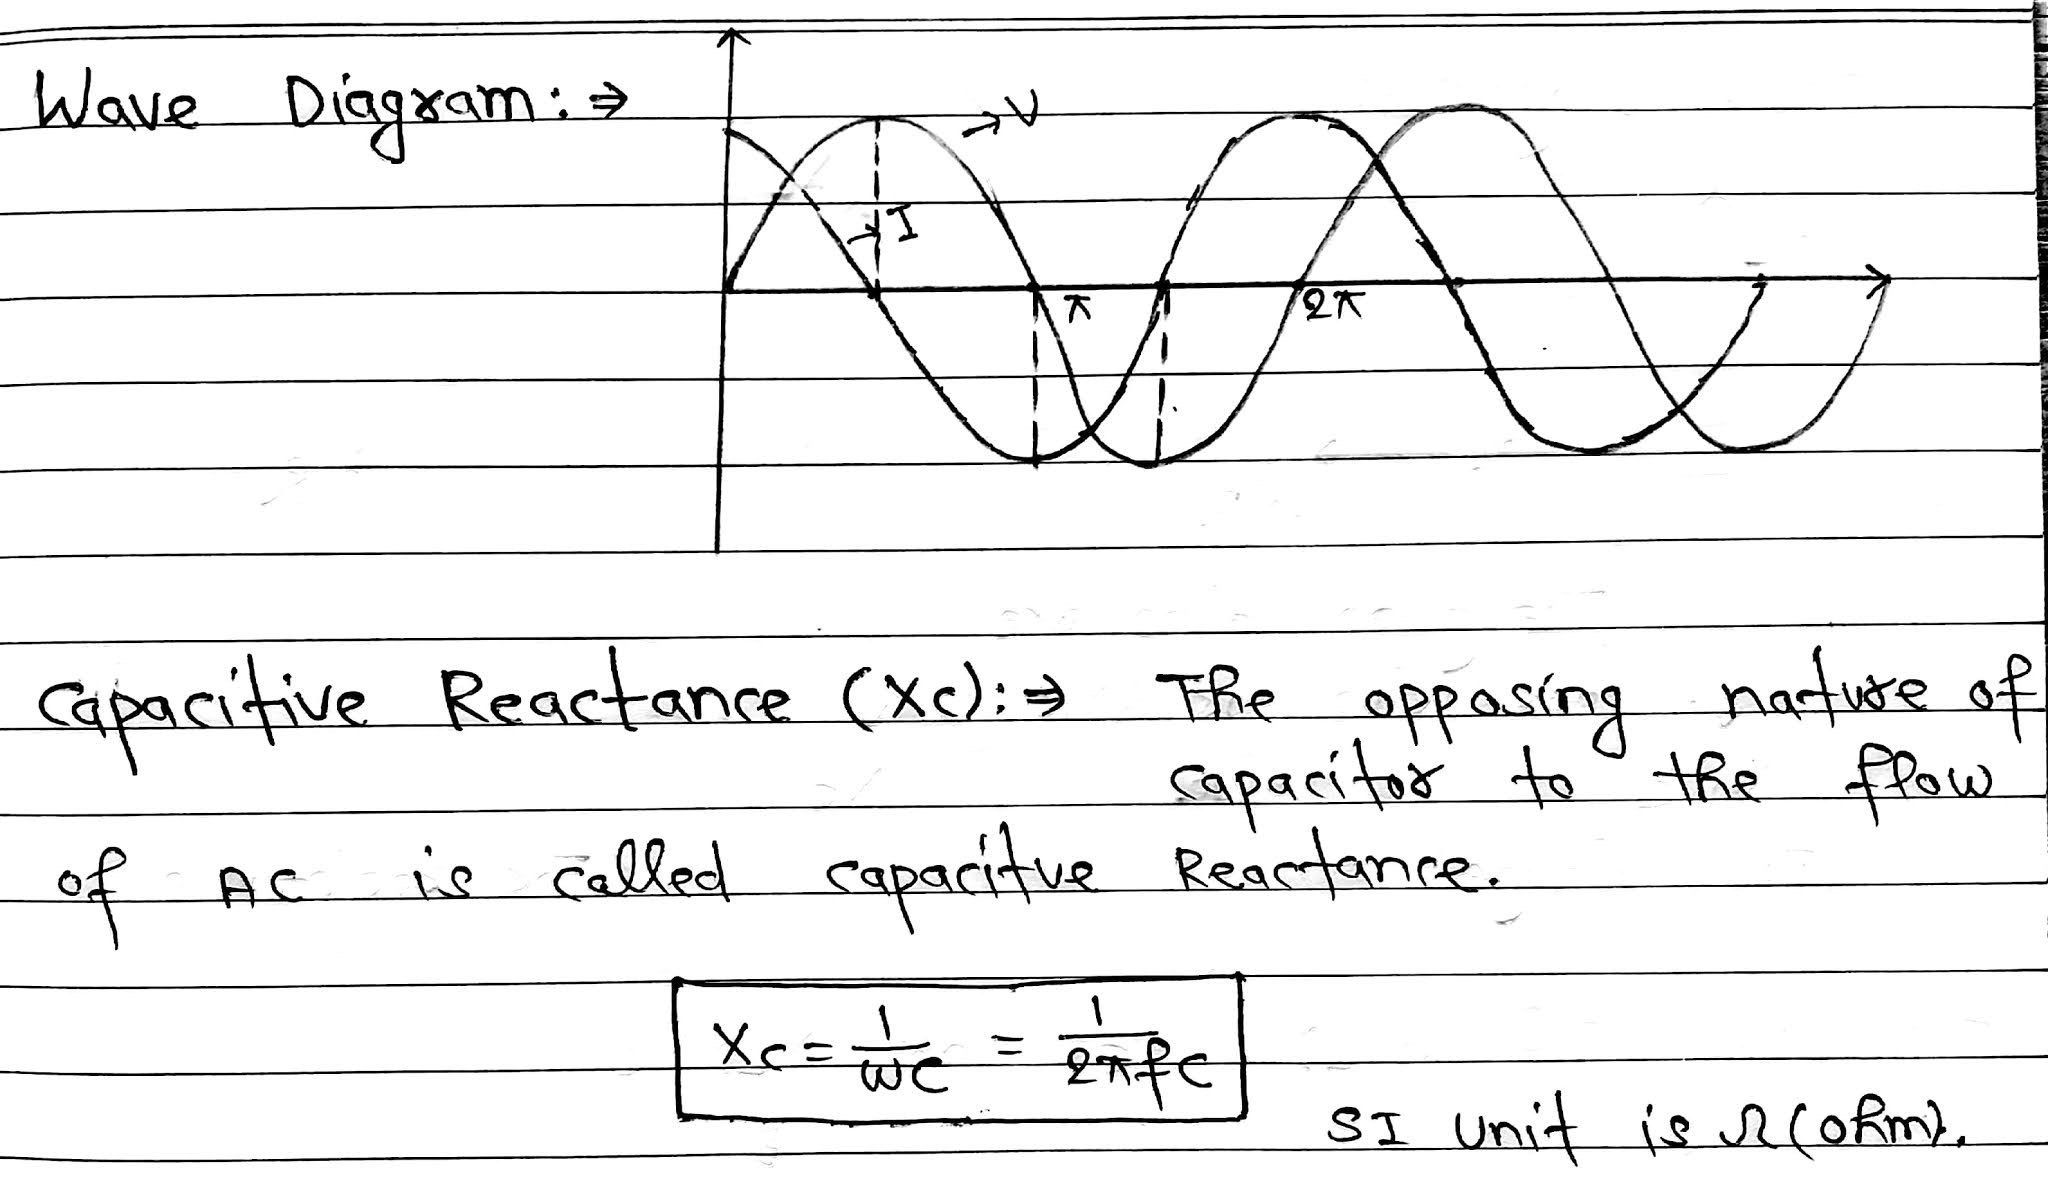 Wave Diagram:⇒
V
I
π
2π
Capacitive Reactance (Xc):⇒ The opposing nature of
capacitor to the flow
of AC is called capacitve Reactance.
Xc = 1/ωC = 1/2πfC
SI unit is Ω (ohm).